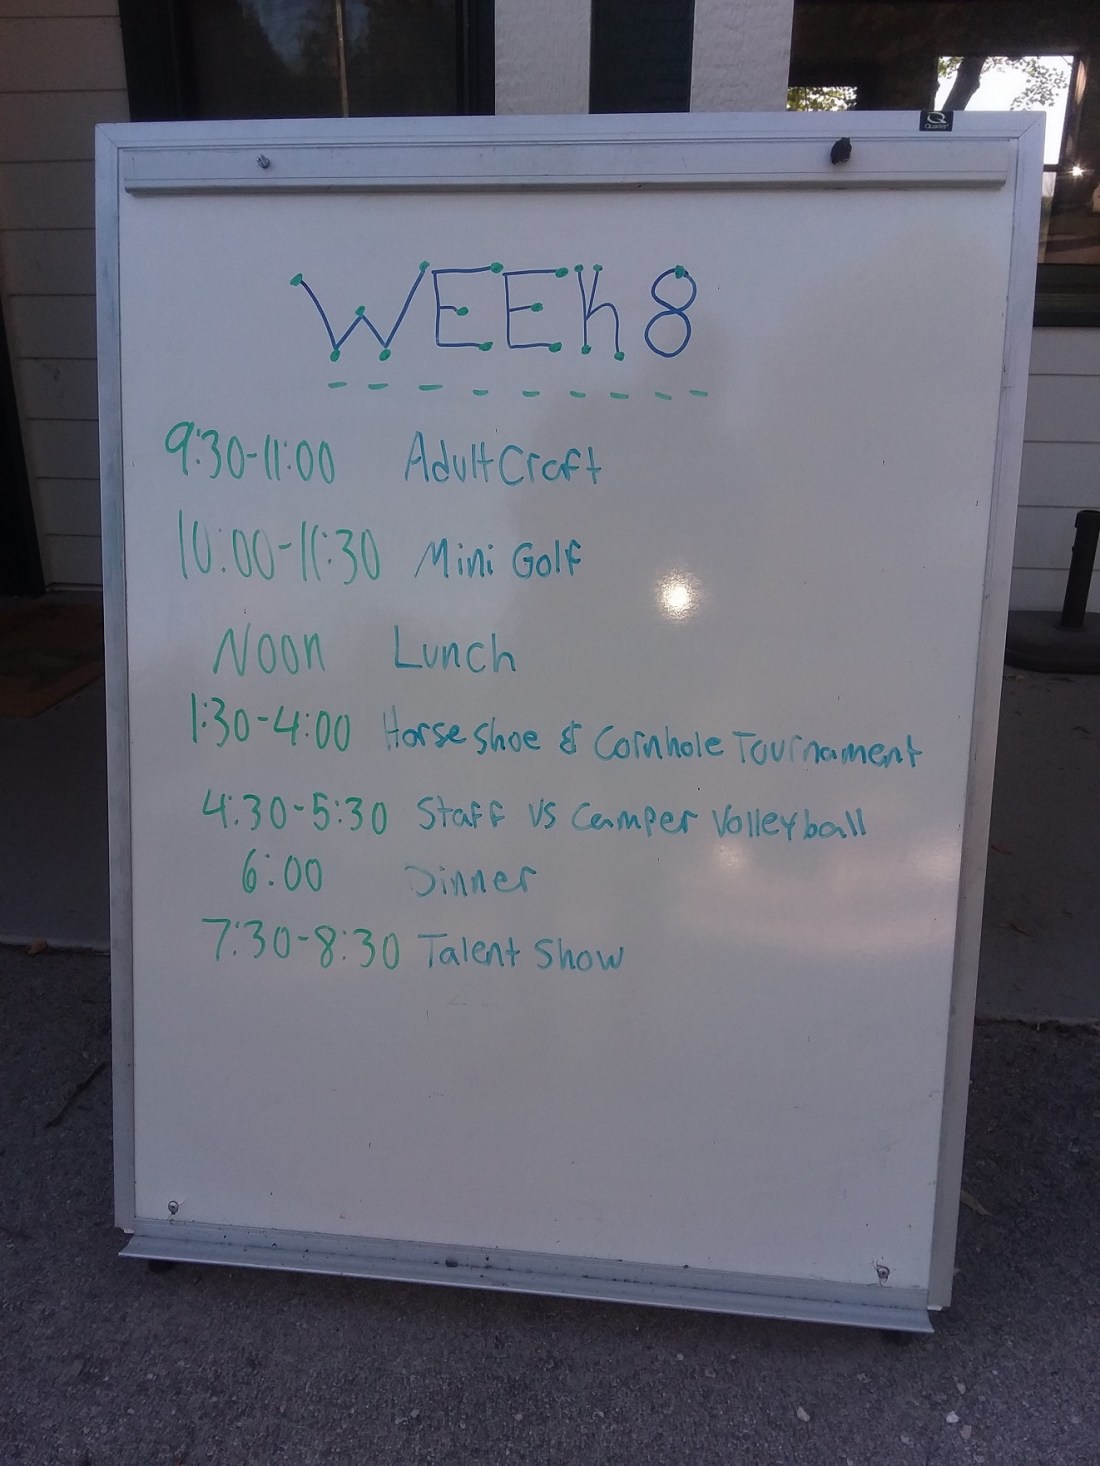 Quartet
WEEK 8
9:30-11:00 Adult Craft
10:00-11:30 Mini Golf
Noon Lunch
1:30-4:00 Horse shoe & Cornhole Tournament
4:30-5:30 Staff vs Camper Volleyball
6:00 Dinner
7:30-8:30 Talent Show